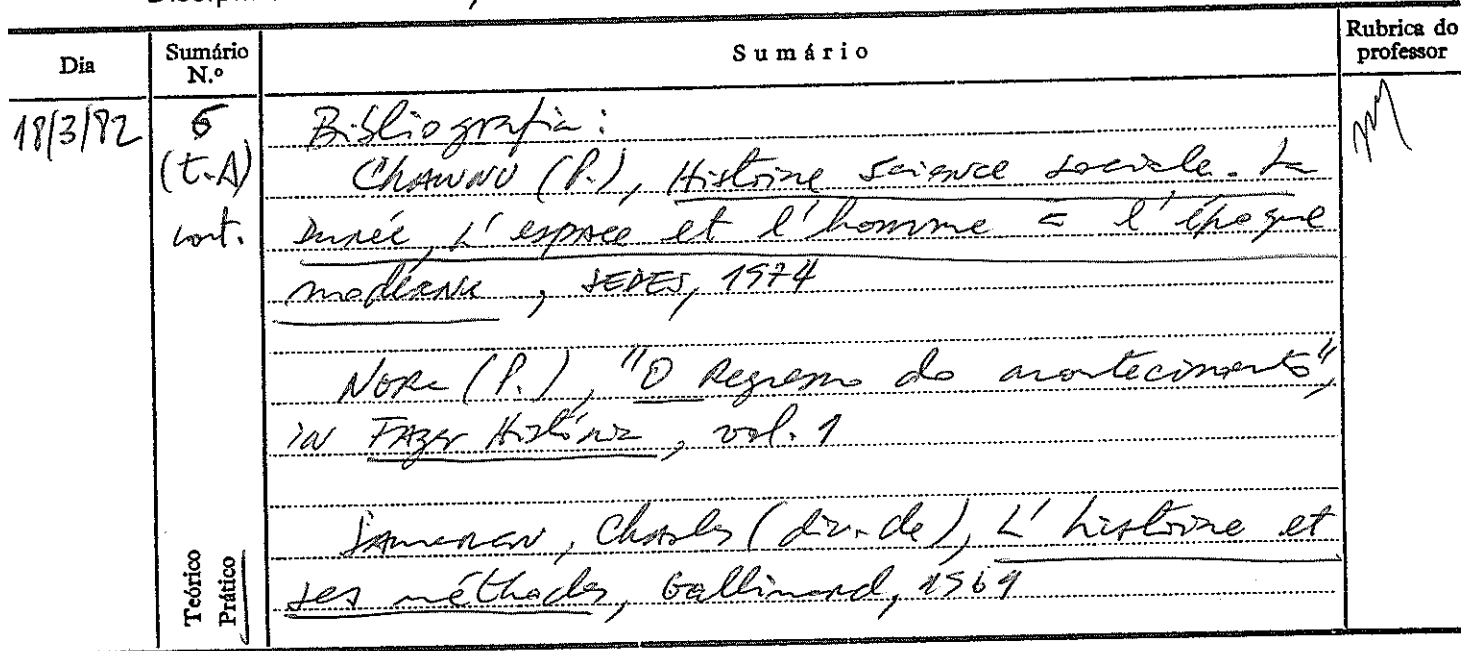 Dia
Sumário N.º
Sumário
Rubrica do professor
18/3/82
6
(t-A)
cont.
Bibliografia:
CHAUNU (P.), Histoire science sociale. La
Durée, L'espace et l'homme à l'époque
moderne, SEDES, 1974
NORA (P.), "O Regresso do acontecimento",
in Fazer História, vol. 1
SAMARAN, Charles (dir. de), L'histoire et
ses méthodes, Gallimard, 1961
Teórico
Prático